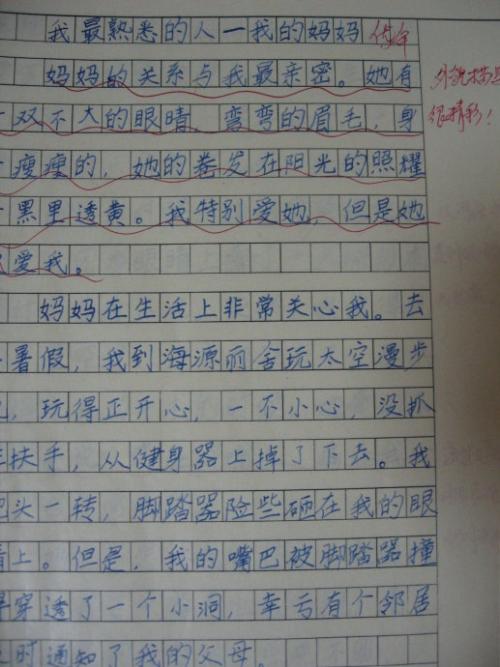 我最熟悉的人—我的妈妈
妈妈的关系与我最亲密。她有
双不大的眼睛，弯弯的眉毛，身
瘦瘦的，她的卷发在阳光的照耀
黑里透黄。我特别爱她，但是她
爱我。
妈妈在生活上非常关心我。去
暑假，我到海源丽舍玩太空漫步
，玩得正开心，一不小心，没抓
扶手，从健身器上掉了下去。我
头一转，脚踏器险些砸在我的眼
上。但是，我的嘴巴被脚踏器撞
穿透了一个小洞，幸亏有个邻居
时通知了我的父母。
外貌描
很精彩！